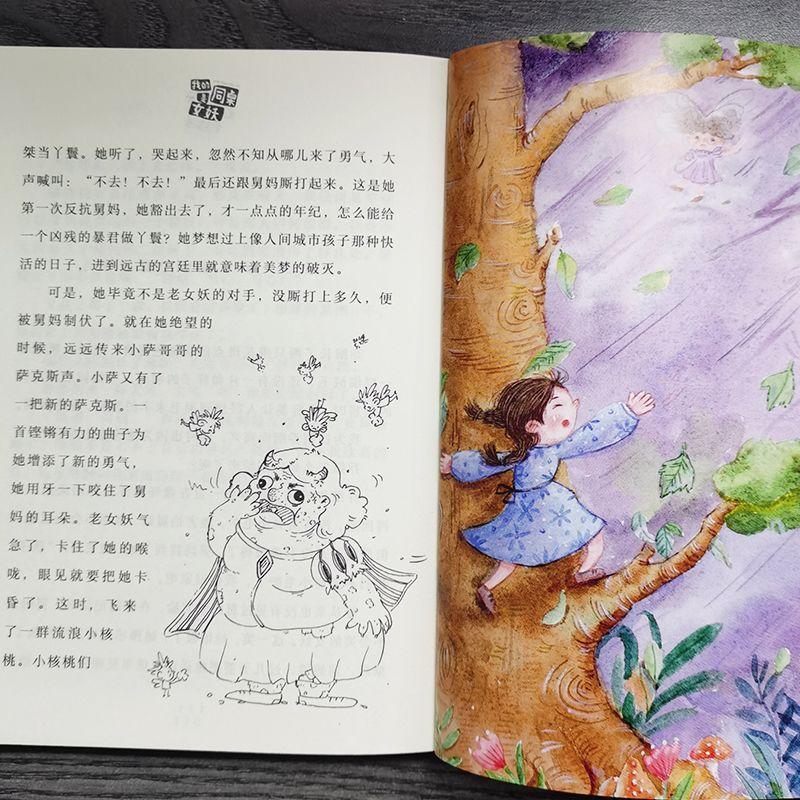 我的同桌
是
女妖
桀当丫鬟。她听了，哭起来，忽然不知从哪儿来了勇气，大
声喊叫：“不去！不去！”最后还跟舅妈厮打起来。这是她
第一次反抗舅妈，她豁出去了，才一点点的年纪，怎么能给
一个凶残的暴君做丫鬟？她梦想过上像人间城市孩子那种快
活的日子，进到远古的宫廷里就意味着美梦的破灭。
可是，她毕竟不是老女妖的对手，没厮打上多久，便
被舅妈制伏了。就在她绝望的
时候，远远传来小萨哥哥的
萨克斯声。小萨又有了
一把新的萨克斯。一
首铿锵有力的曲子为
她增添了新的勇气，
她用牙一下咬住了舅
妈的耳朵。老女妖气
急了，卡住了她的喉
咙，眼见就要把她卡
昏了。这时，飞来
了一群流浪小核
桃。小核桃们